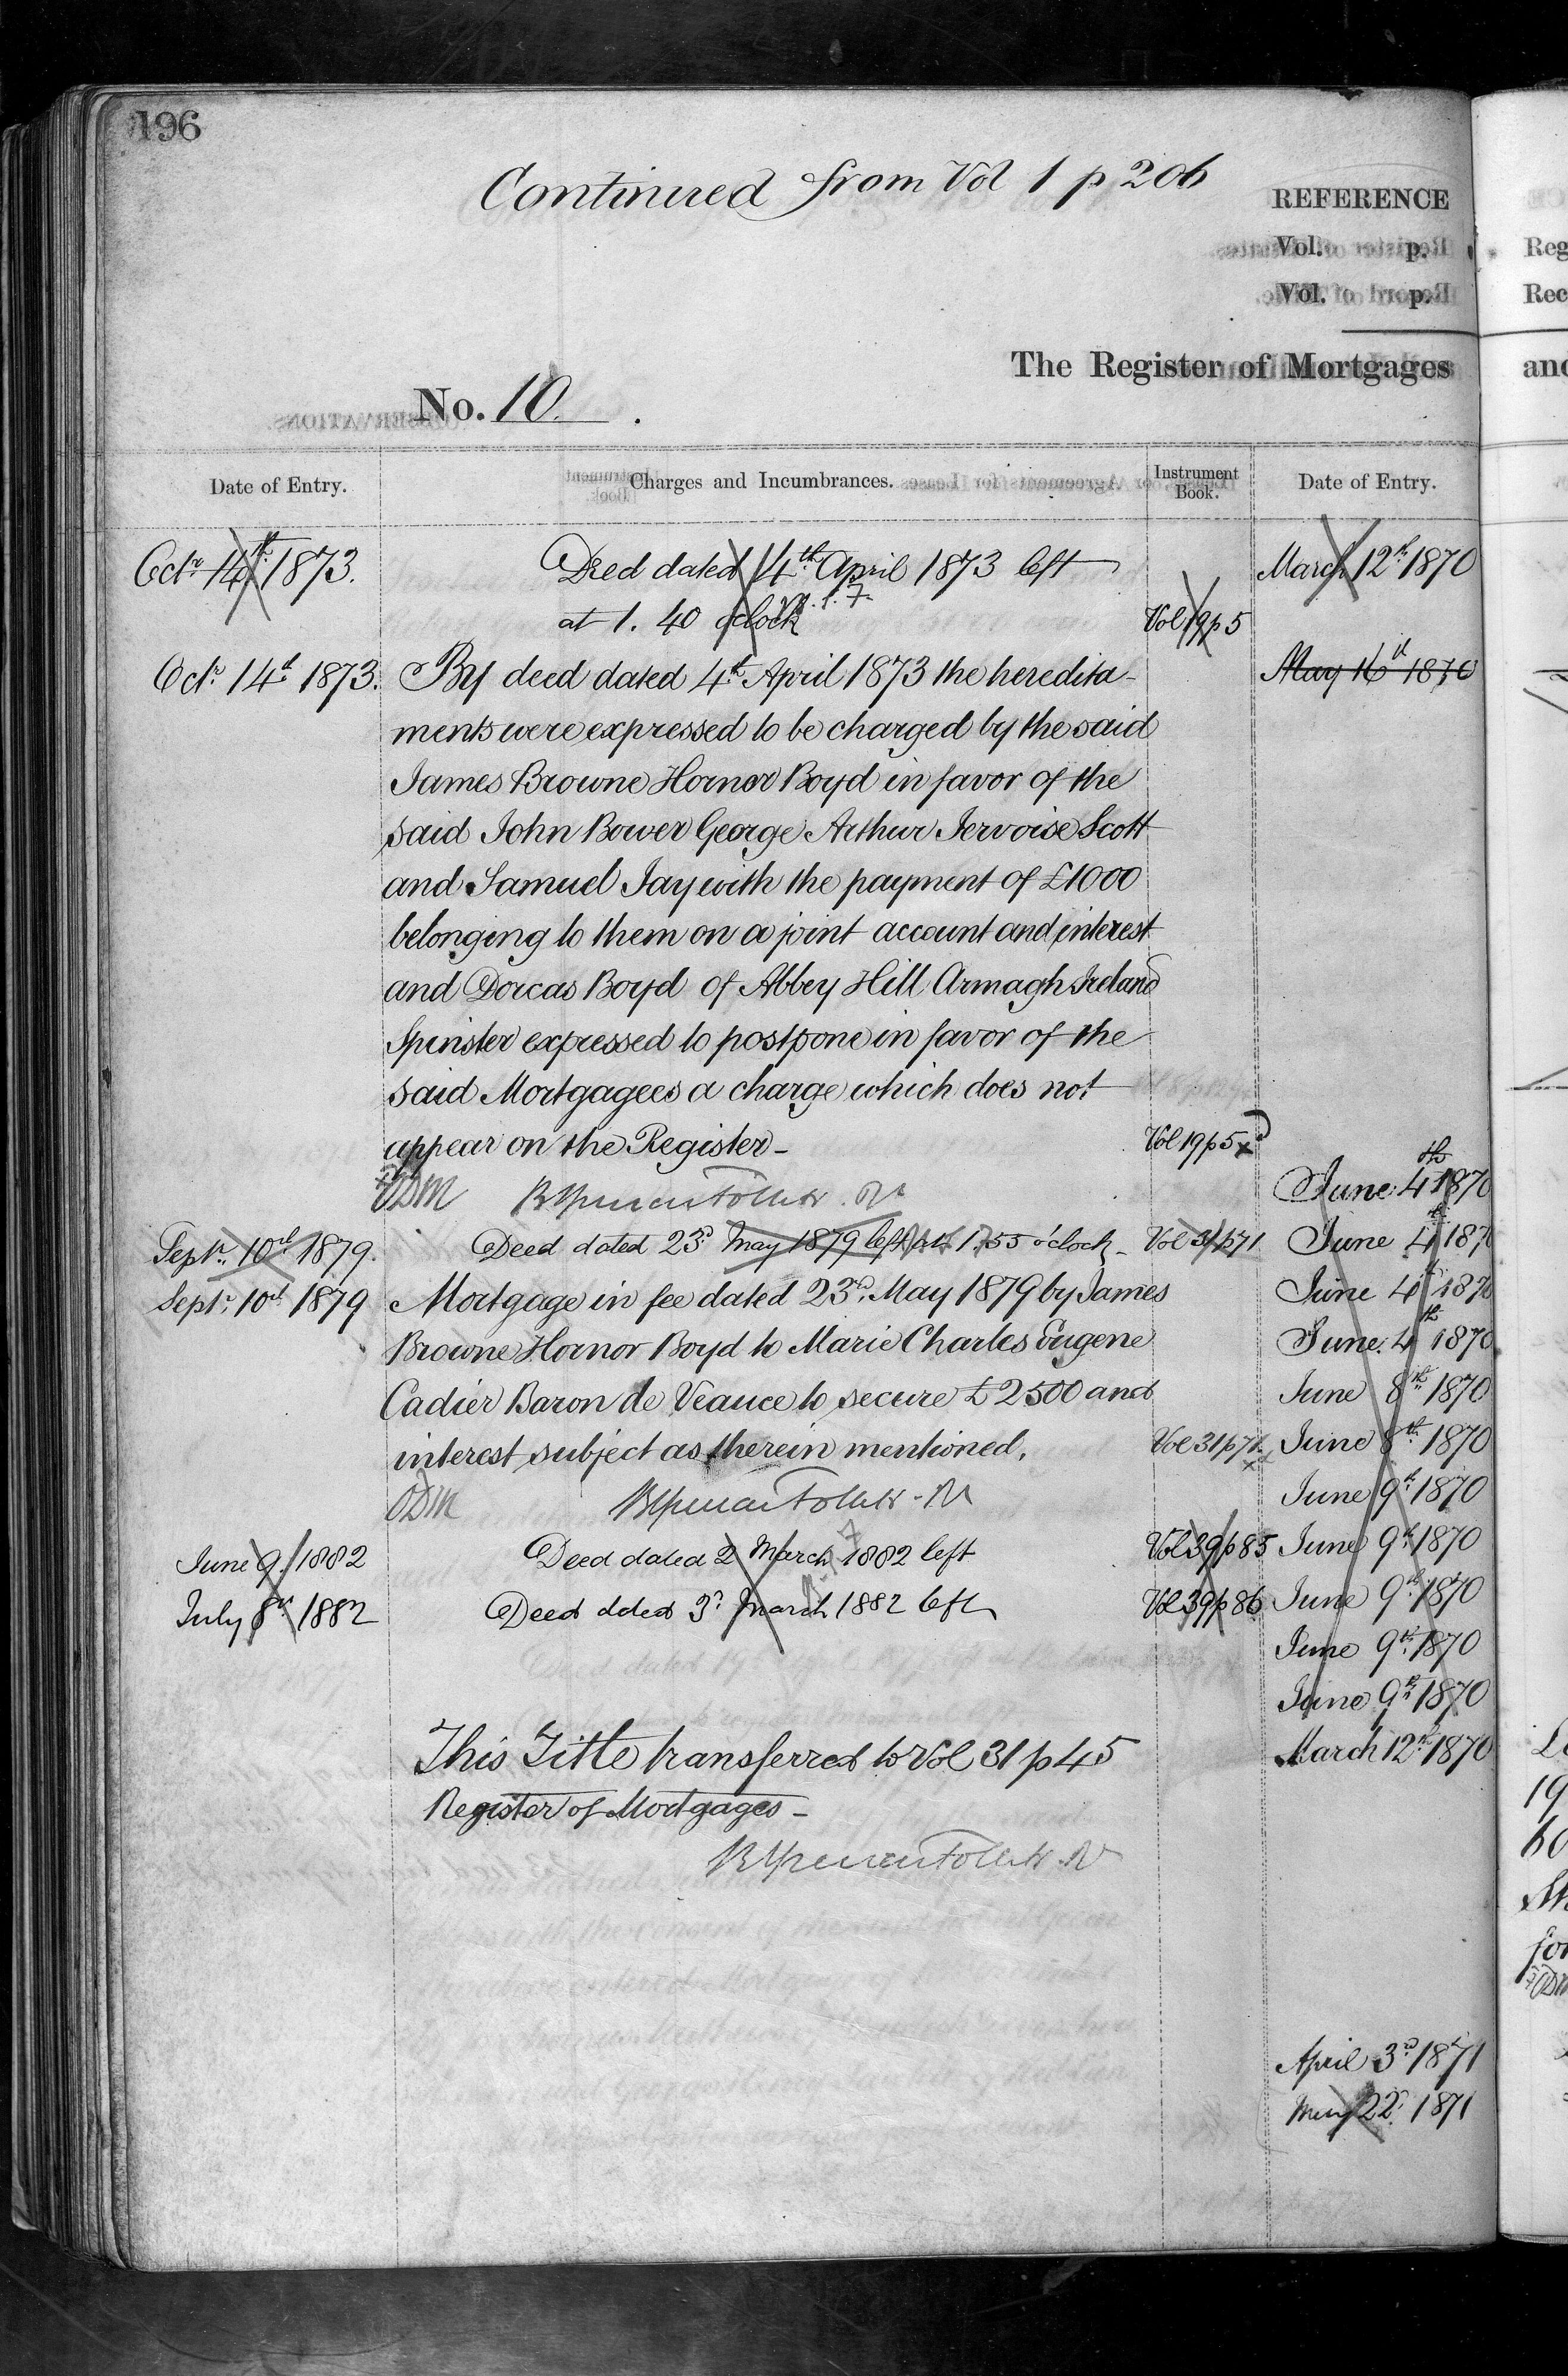 196
Continued from Vol 1 p 206
REFERENCE
Vol. p.
Vol. p.
The Register of Mortgages
No. 10.
Date of Entry.
Charges and Incumbrances.
Instrument Book.
Date of Entry.
Octr 14th 1873.
Deed dated 4th April 1873 left
at 1. 40 o'clock
Vol 19 p 5
Octr 14th 1873.
By deed dated 4th April 1873 the heredita-
ments were expressed to be charged by the said
James Browne Hornor Boyd in favor of the
said John Bower George Arthur Jervoise Scott
and Samuel Jay with the payment of £1000
belonging to them on a joint account and interest
and Dorcas Boyd of Abbey Hill Armagh Ireland
Spinster expressed to postpone in favor of the
said Mortgagees a charge which does not
appear on the Register -
Vol 19 p 5
ODM
Septr 10th 1879.
Deed dated 23rd May 1879 left at 1.55 o'clock -
Vol 31 p 71
Septr 10th 1879
Mortgage in fee dated 23rd May 1879 by James
Browne Hornor Boyd to Marie Charles Eugene
Cadier Baron de Veauce to secure £2500 and
interest subject as therein mentioned.
Vol 31 p 71
ODM
June 9. 1882
Deed dated 2 March 1882 left
Vol 39 p 85
July 8th 1882
Deed dated 3rd March 1882 left
Vol 39 p 86
This Title transferred to Vol 31 p 45
Register of Mortgages -
March 12th 1870
May 16th 1870
June 4th 1870
June 4th 1870
June 4th 1870
June 4th 1870
June 8th 1870
June 8th 1870
June 9th 1870
June 9th 1870
June 9th 1870
June 9th 1870
June 9th 1870
March 12th 1870
April 3rd 1871
May 22d 1871
Reg
Rec
and